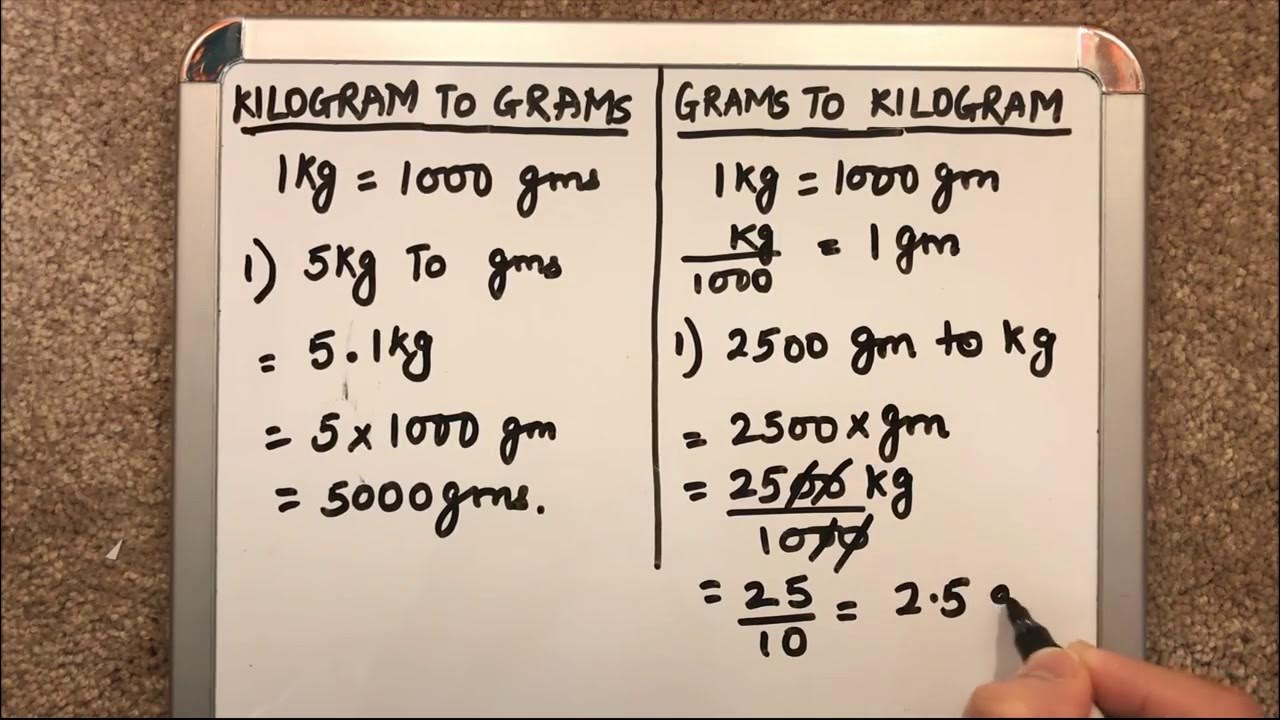 KILOGRAM TO GRAMS
1Kg = 1000 gms
1) 5Kg To gms
= 5.1kg
= 5 x 1000 gm
= 5000gms.
GRAMS TO KILOGRAM
1Kg = 1000 gm
Kg
1000
= 1 gm
1) 2500 gm to kg
= 2500 x gm
= 2500 kg
1000
= 25
10
= 2.5